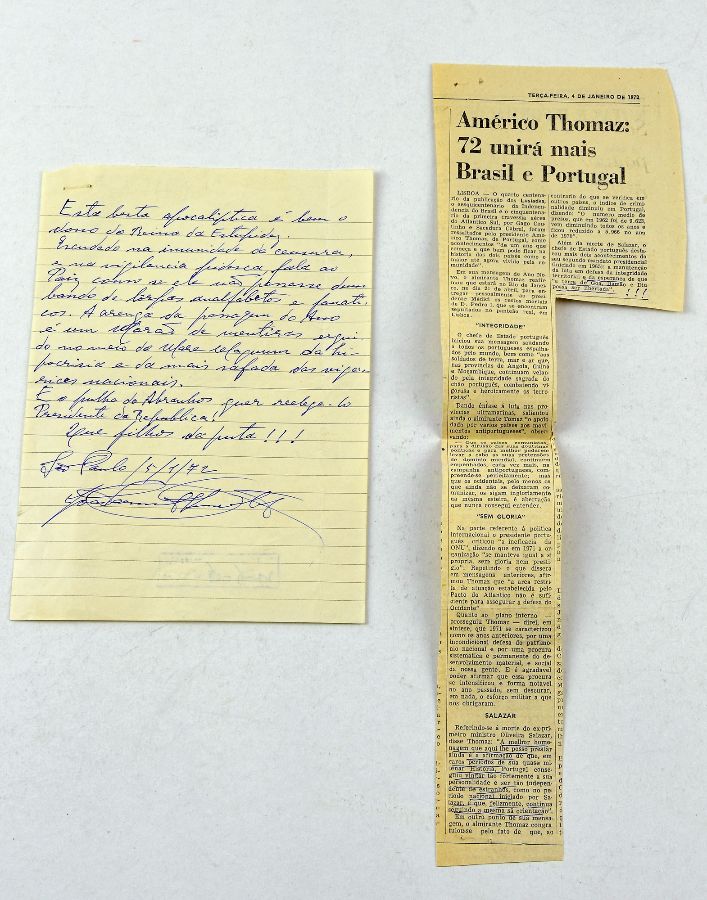 Esta besta apocalíptica é bem o
dono do Reino da Estupidez.
Escudado na imunidade de censura,
e na vigilancia pidesca, fala ao
País como se ele não passasse dum
bando de torpes analfabetos e fanati-
cos. A arenga da passagem do Ano
é um de mentiras ergui-
do no meio da da hi-
pocrisia e da mais safada das
nacionais.
E o pulha do Abranhos quer reelege-lo
Presidente da Republica!
Que filhos da puta!!!
São Paulo/5/1/72
TERÇA-FEIRA, 4 DE JANEIRO DE 1972
Américo Thomaz:
72 unirá mais
Brasil e Portugal
LISBOA — O quarto centená-
rio da publicação dos Lusíadas,
o sesquicentenário da Indepen-
dência do Brasil e o cinquentená-
rio da primeira travessia aérea
do Atlântico Sul, por Gago Cou-
tinho e Sacadura Cabral, foram
ressaltados pelo presidente Amé-
rico Thomaz, de Portugal, como
acontecimentos "de um ano que
começa e que bem pode ficar na
história dos dois países como o
maior até agora vivido pela co-
munidade".
Em sua mensagem de Ano No-
vo, o almirante Thomaz reafir-
mou que estará no Rio de Janei-
ro, no dia 21 de abril, para en-
tregar pessoalmente ao presi-
dente Médici os restos mortais
de D. Pedro I, que se encontram
sepultados no panteão real, em
Lisboa.
"INTEGRIDADE"
O chefe de Estado português
iniciou sua mensagem saudando
a todos os portugueses espalha-
dos pelo mundo, bem como "aos
soldados de terra, mar e ar que,
nas províncias de Angola, Guiné
e Moçambique, continuam velan-
do pela integridade sagrada do
chão português, combatendo vi-
gorosa e heroicamente os terro-
ristas".
Dando ênfase à luta nas pro-
víncias ultramarinas, salientou
ainda o almirante Tomaz "o apoio
dado por vários países aos movi-
mentos antiportugueses", obser-
vando:
— Que os países comunistas,
para a difusão das suas doutrinas
políticas e para melhor poderem
levar a cabo as suas pretensões
de domínio mundial, continuem
empenhados, cada vez mais, na
campanha antiportuguesa, com-
preende-se perfeitamente; mas
que os ocidentais, pelo menos os
que ainda não se deixaram co-
munizar, os sigam ingloriamente
na mesma esteira, é aberração
que nunca consegui entender.
"SEM GLORIA"
Na parte referente à política
internacional o presidente portu-
guês criticou "a ineficácia da
ONU", dizendo que em 1971 a or-
ganização "se manteve igual a si
própria, sem glória nem prestí-
gio". Repetindo o que dissera
em mensagens anteriores, afir-
mou Thomaz que "a área restri-
ta de atuação estabelecida pelo
Pacto do Atlântico não é sufi-
ciente para assegurar a defesa do
Ocidente"
Quanto ao plano interno —
prosseguiu Thomaz — direi, em
síntese, que 1971 se caracterizou
como os anos anteriores, por uma
incondicional defesa do patrimô-
nio nacional e por uma procura
sistemática e permanente do de-
senvolvimento material e social
da nossa gente. E é agradável
poder afirmar que essa procura
se intensificou e forma notável
no ano passado, sem descurar,
em nada, o esforço militar a que
nos obrigaram.
SALAZAR
Referindo-se à morte do ex-pri-
meiro ministro Oliveira Salazar,
disse Thomaz: "A melhor home-
nagem que aqui lhe posso prestar
ainda é a afirmação de que, em
raros períodos de sua quase mi-
lenar História, Portugal conse-
guiu vincar tão fortemente a sua
personalidade e ser tão indepen-
dente de estranhos, como no pe-
ríodo nacional iniciado por Sa-
lazar, e que, felizmente, continua
seguindo a mesma sã orientação".
Em outro ponto de sua mensa-
gem, o almirante Thomaz congra-
tulou-se pelo fato de que, ao
contrário do que se verifica em
outros países, o índice de crimi-
nalidade diminuiu em Portugal,
dizendo: "O número médio de
presos, que em 1962 foi de 9.623,
vem diminuindo todos os anos e
ficou reduzido a 5.966 no ano
de 1970".
Além da morte de Salazar, o
chefe de Estado português desta-
cou mais dois acontecimentos do
seu segundo mandato presidencial
iniciado em 1965: a manutenção
da luta em defesa da integridade
territorial, e da esperança de que
"a terra de Goa, Damão e Diu
possa ser libertada". !!!